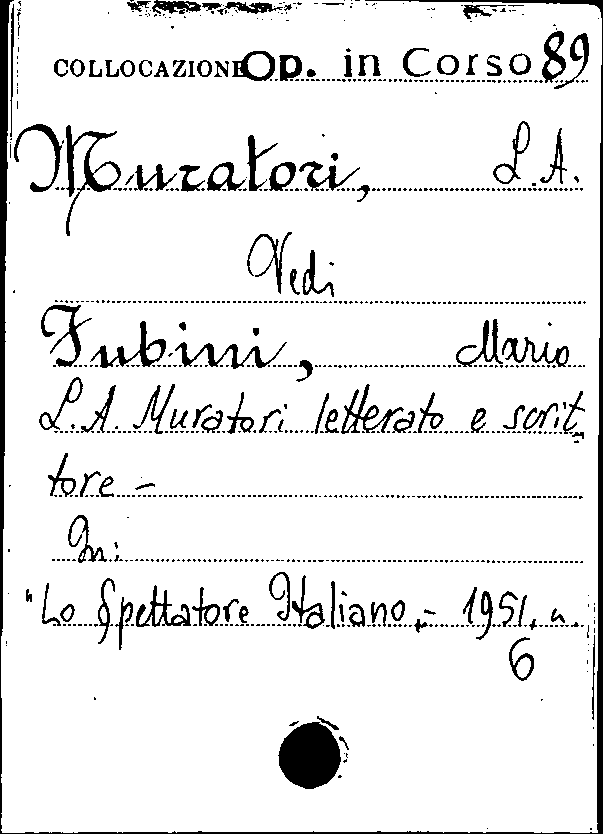 COLLOCAZIONE Op. in Corso 89
Muratori, L.A.
Vedi
Fubini, Mario
L.A. Muratori letterato e scrit-
tore -
In:
"Lo Spettatore Italiano.- 1951. n.
6